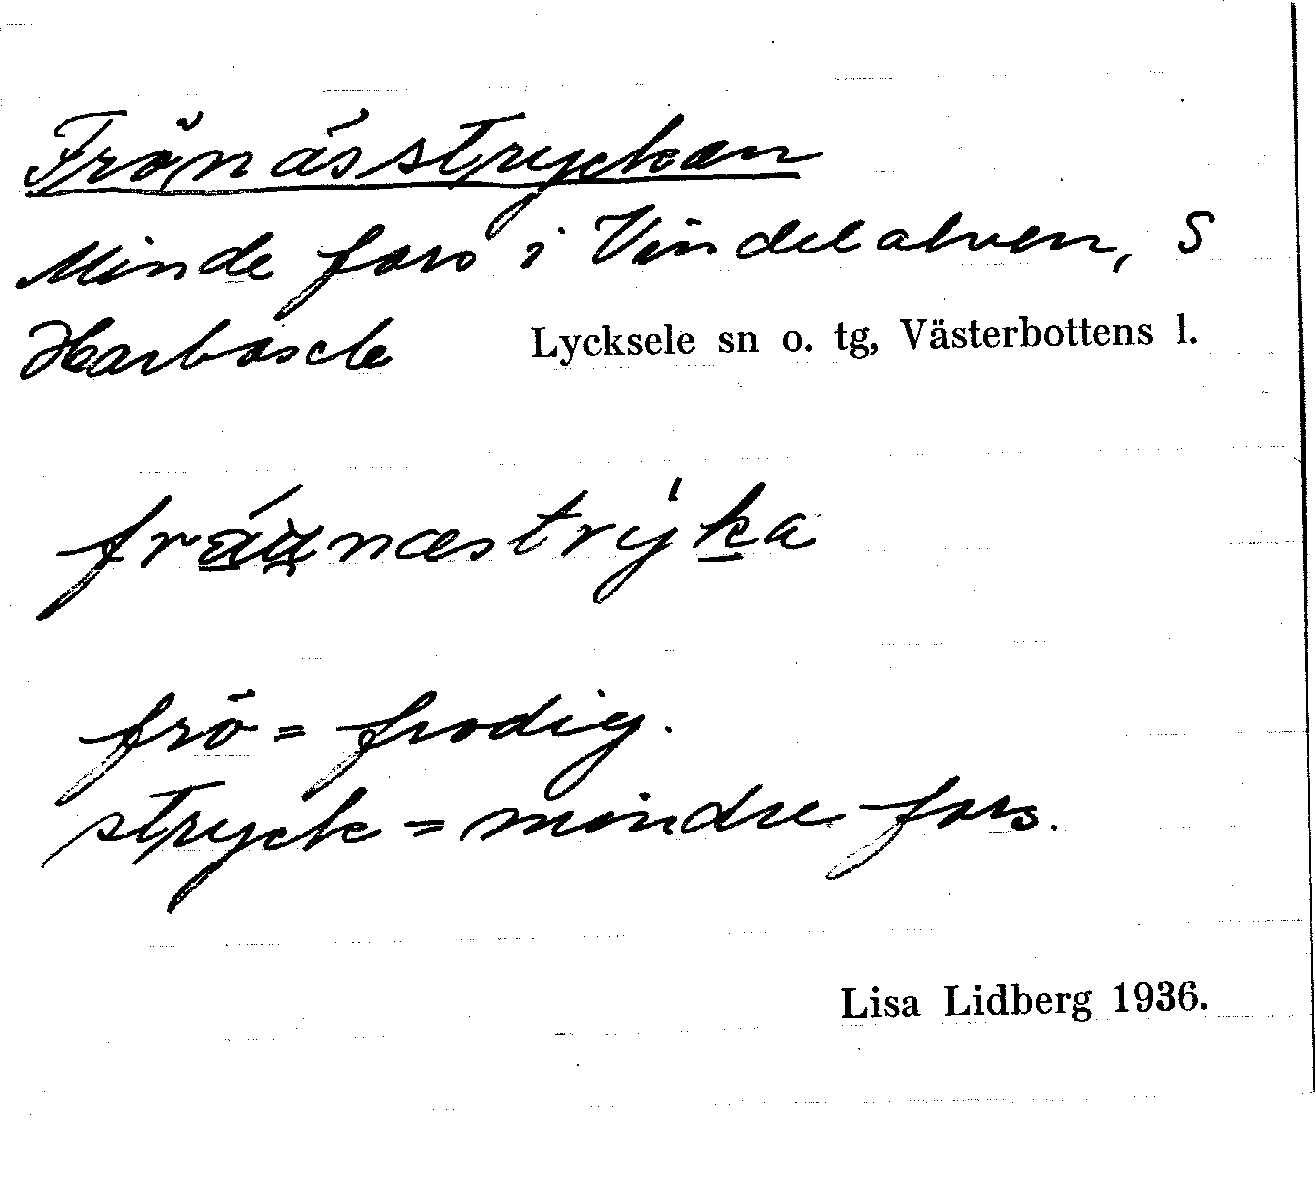 Frönässtryckan
Minde fors i Vindelalven, S
Harbäck Lycksele sn o. tg, Västerbottens l.
frö = frodig.
stryck = mindre fors.
Lisa Lidberg 1936.